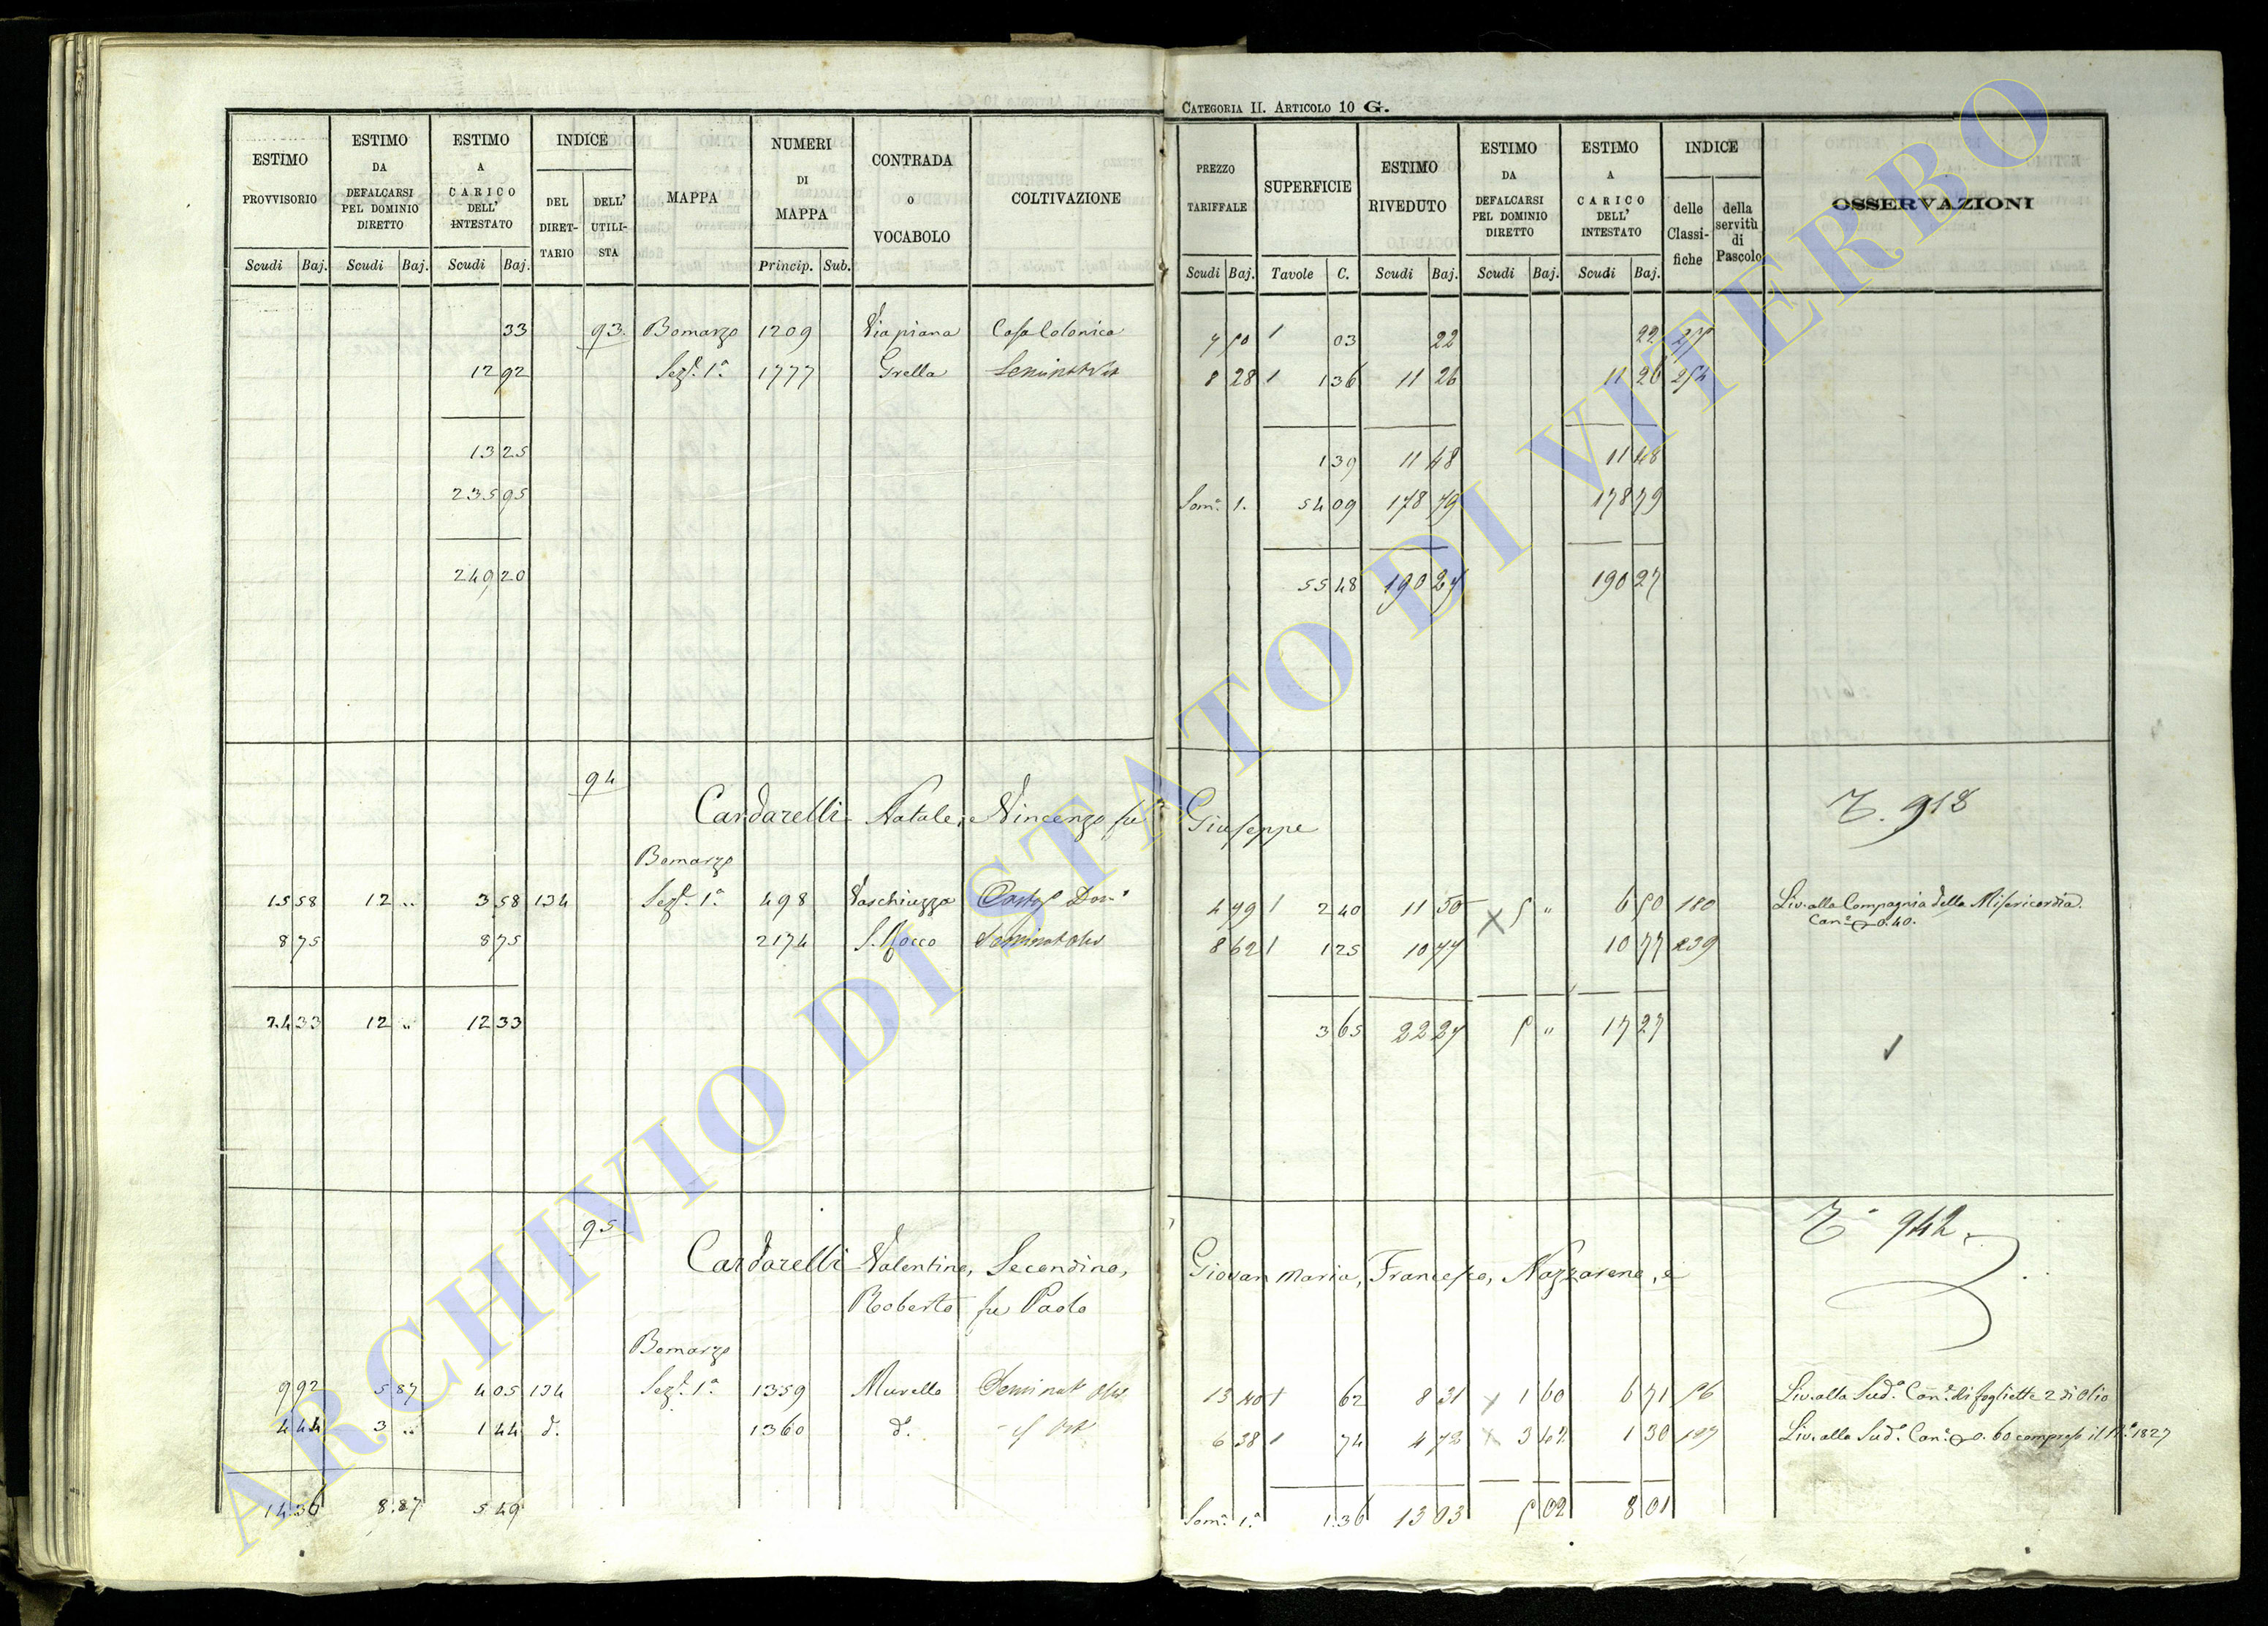 CATEGORIA II. ARTICOLO 10 G.
ESTIMO PROVVISORIO Scudi Baj.
ESTIMO DA DEFALCARSI PEL DOMINIO DIRETTO Scudi Baj.
ESTIMO A CARICO DELL' INTESTATO Scudi Baj.
INDICE DEL DIRET-TARIO DELL' UTILI-STA
MAPPA
NUMERI DI MAPPA Princip. Sub.
CONTRADA o VOCABOLO
COLTIVAZIONE
PREZZO TARIFFALE Scudi Baj.
SUPERFICIE Tavole C.
ESTIMO RIVEDUTO Scudi Baj.
ESTIMO DA DEFALCARSI PEL DOMINIO DIRETTO Scudi Baj.
ESTIMO A CARICO DELL' INTESTATO Scudi Baj.
INDICE delle Classi-fiche della servitù di Pascolo
OSSERVAZIONI
33 93. Bomarzo 1209 Viapiana Casa Colonica 7 50 1 03 22 22
12 92 Sez. 1ª 1777 Grella 8 28 1 1 36 11 26 11 26 254
13 25 1 39 11 48 11 48
235 95 Som. 1. 54 09 178 79 178 79
249 20 55 48 190 27 190 27
94
Cardarelli Natale, Vincenzo fu Giuseppe T. 918
Bomarzo
15 58 12 .. 3 58 134 Sez. 1ª 498 Vaschiuzza 4 79 1 2 40 11 50 5 " 6 50 180 Liv. alla Compagnia della Misericordia.
Can. 0.40.
8 75 8 75 2174 S. Rocco 8 62 1 1 25 10 77 10 77 239
24 33 12 .. 12 33 3 65 22 27 5 " 17 27
95
T. 942
Cardarelli Valentino, Secondino, Giovan Maria, Francesco, Nazzareno, e
Roberto fu Paolo
Bomarzo
9 92 5 87 4 05 134 Sez. 1ª 1359 Murella 13 40 1 62 8 31 1 60 6 71 56 Liv. alla Sud. Can. di fogliette 2 di Olio
4 44 3 .. 1 44 d. 1360 d. 6 38 1 74 4 72 3 42 1 30 Liv. alla Sud. Can. 0.60 compreso il N. 1827
14.36 8.87 5 49 Som. 1.ª 1.36 13 03 5 02 8 01
ARCHIVIO DI STATO DI VITERBO